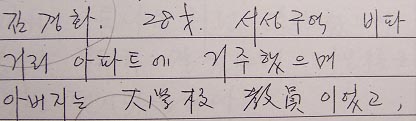 김경화. 28才. 서성구역 비파
거리 아파트에 거주했으며
아버지는 大学校 敎員이었고,